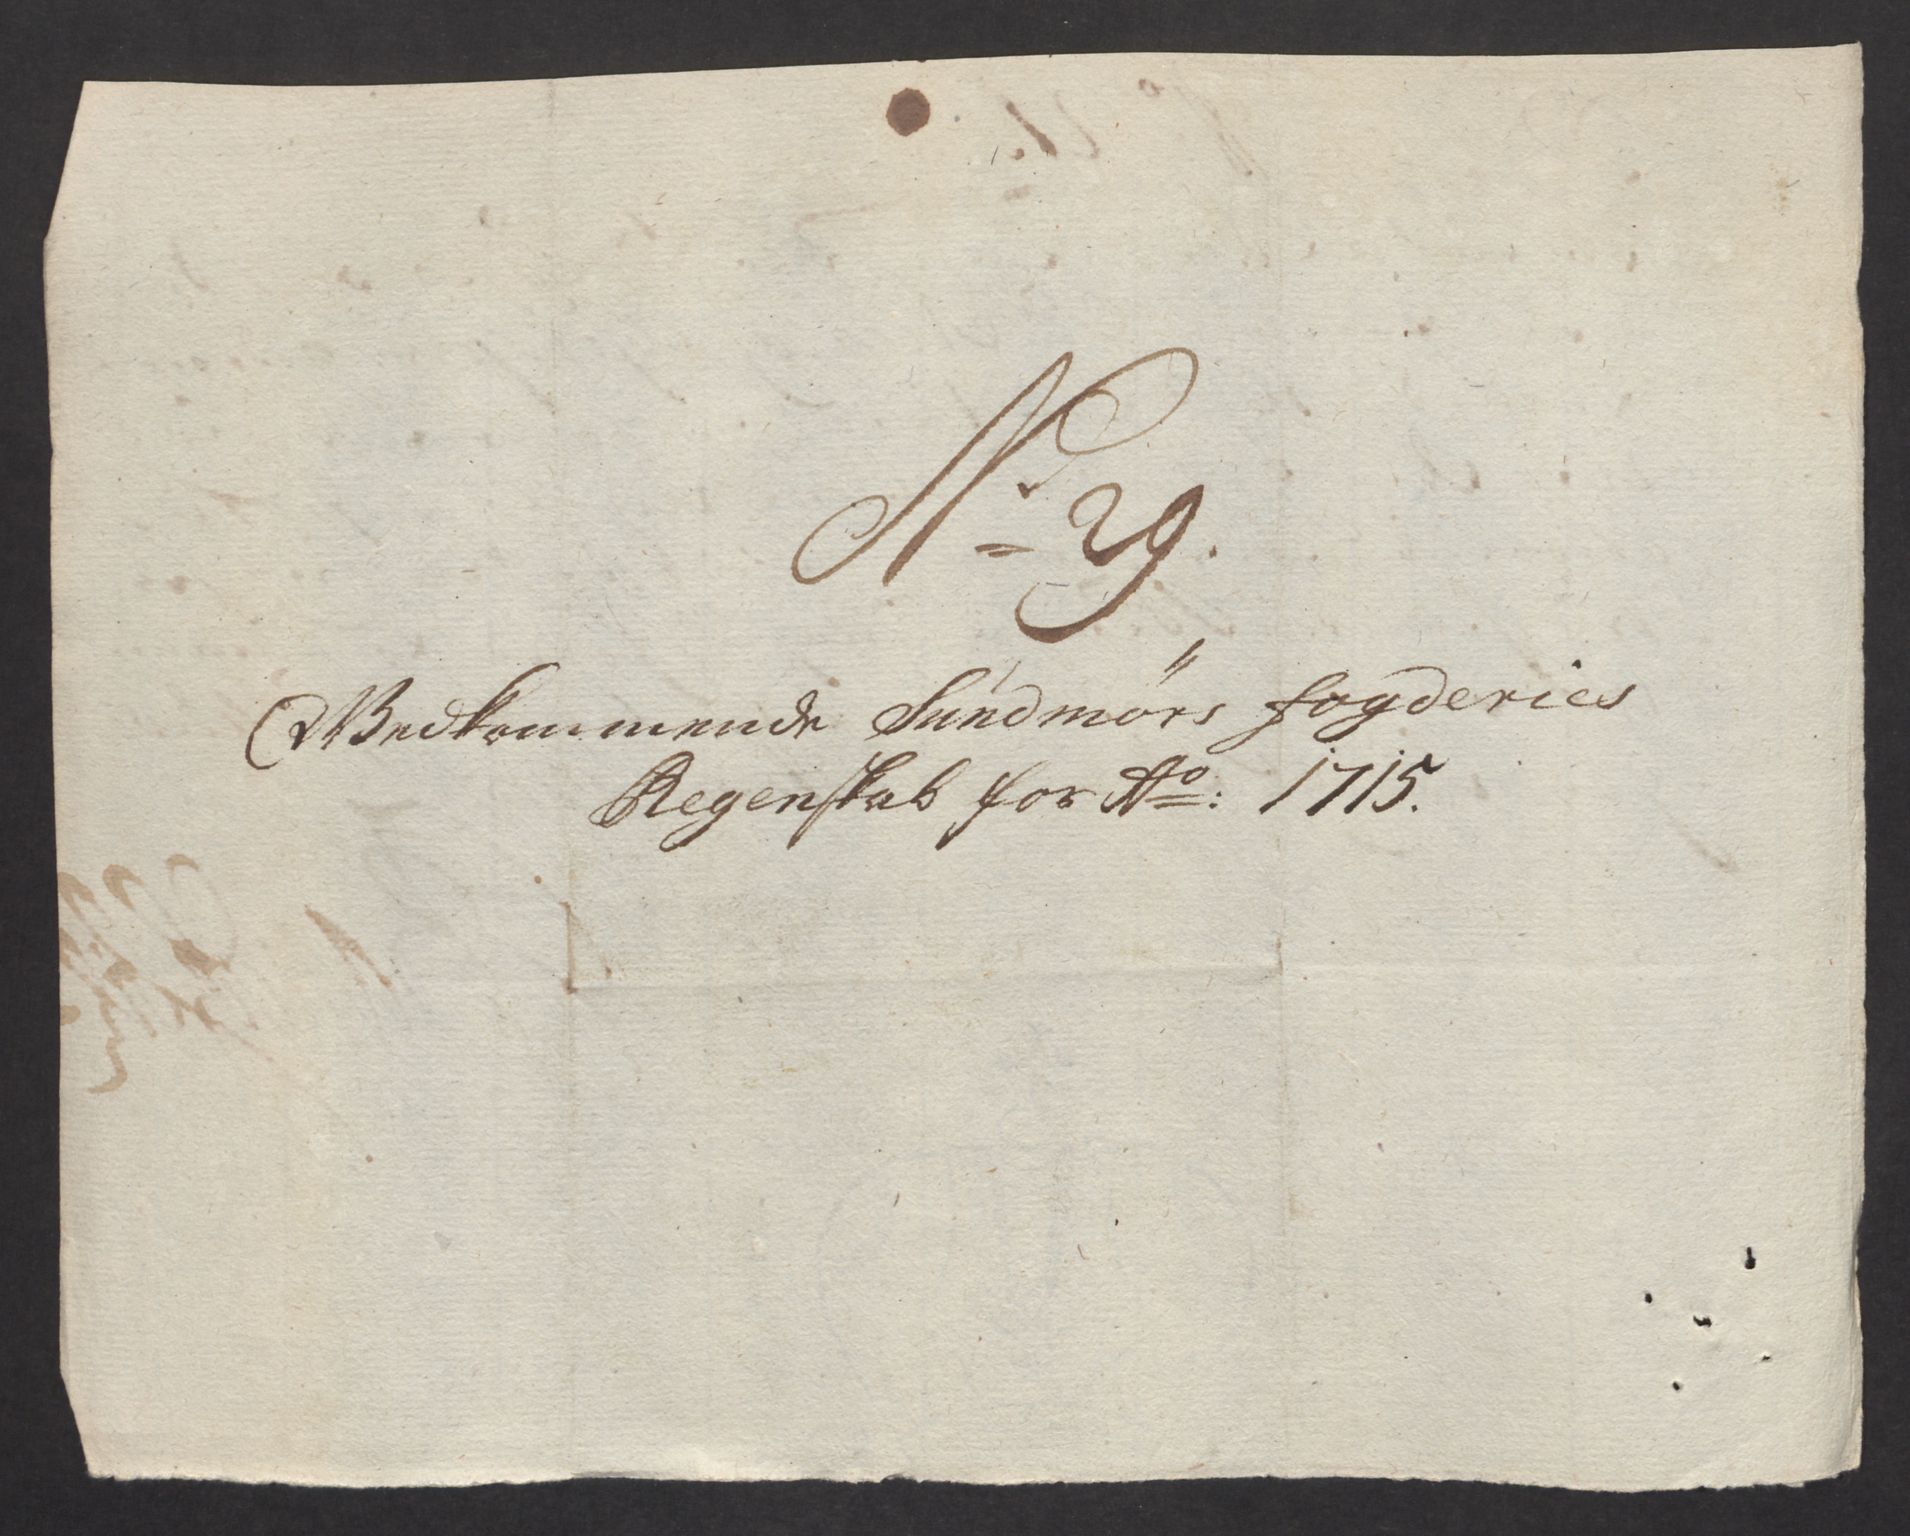 No 29.
Vedkommende Sundmørs fogderies
Regenskab for Ao: 1715.